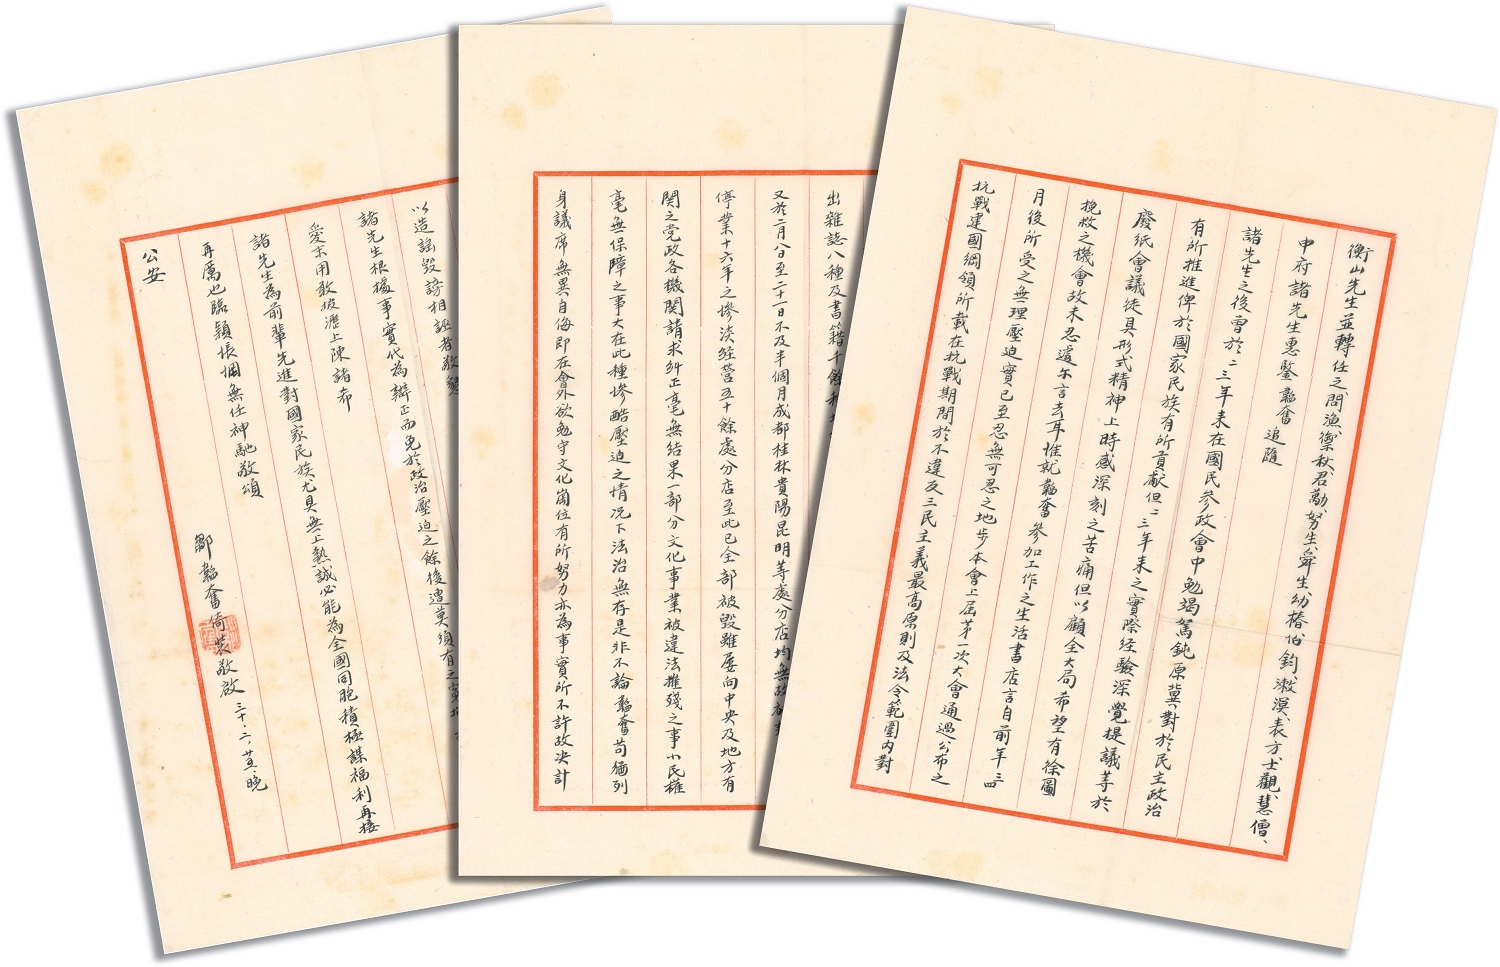 衡山先生並轉任之、問漁、禦秋、君勱、努生、舜生、幼椿、伯鈞、漱溟、表方、士觀、慧僧、
申府諸先生惠鑒韜奮追隨
諸先生之後曾於二三年來在國民參政會中勉竭駑鈍原冀對於民主政治
有所推進俾於國家民族有所貢獻但二三年來之實際經驗深覺提議等於
廢紙會議徒具形式精神上時感深刻之苦痛但以顧全大局希望有徐圖
挽救之機會故未忍遽爾言去耳惟就韜奮參加工作之生活書店言自前年三四
月後所受之無理壓迫實已至忍無可忍之地步本會上屆第一次大會通過公布之
抗戰建國綱領所載在抗戰期間於不違反三民主義最高原則及法令範圍內對
出雜誌八種及書籍千餘種
又於二月八日至二十一日不及半個月成都桂林貴陽昆明等處分店均無故被
停業十六年之慘淡經營五十餘處分店至此已全部被毀雖屢向中央及地方有
関之党政各機関請求糾正毫無結果一部分文化事業被違法摧殘之事小民權
毫無保障之事大在此種慘酷壓迫之情况下法治無存是非不論韜奮苟猶列
身議席無異自侮即在會外欲勉守文化崗位有所努力亦為事實所不許故决計
以造謠毀謗相誣者敬懇
諸先生根據事實代為辯正而免於政治壓迫之餘後遭莫須有之冤
愛末用敢披瀝上陳諸希
諸先生為前輩先進對國家民族尤具無上熱誠必能為全國同胞積極謀福利再接
再厲也臨穎悵惘無任神馳敬頌
公安
鄒韜奮倚裝敬啟 三十、二、廿五、晚